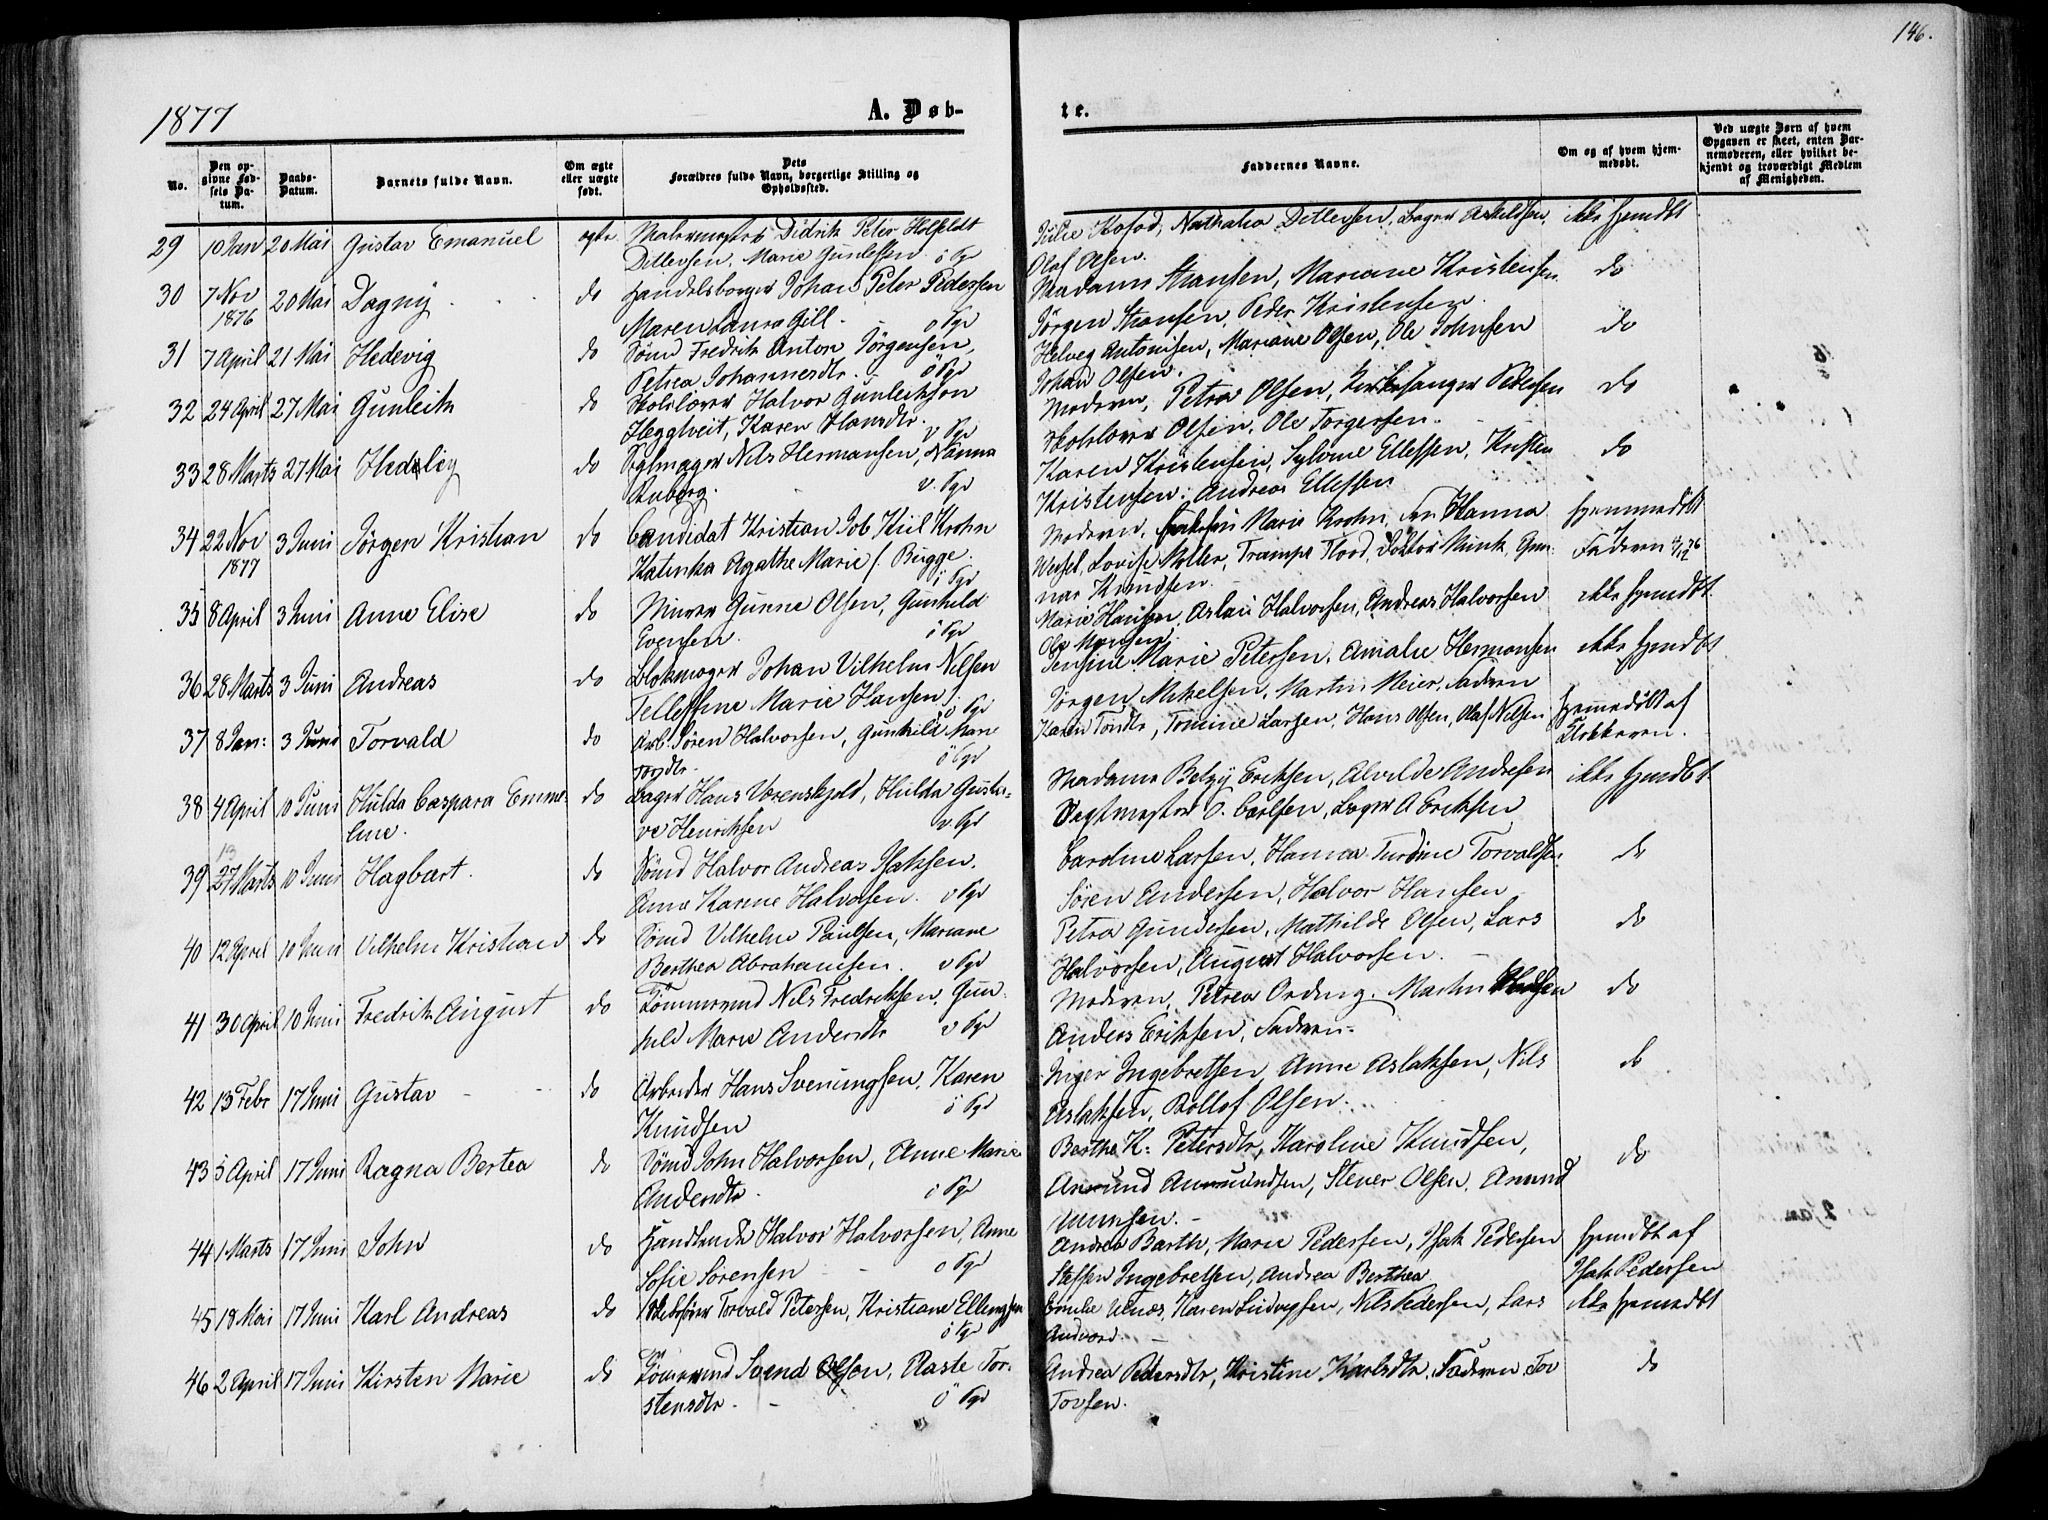 146.
1877
A. Døb-
te.
No.
Den op-
givne Fød-
sels Da-
tum.
Daabs-
Datum.
Barnets fulde Navn.
Om ægte
eller uægte
født.
Dets
Forældres fulde Navn, borgerlige Stilling og
Opholdssted.
Faddernes Navne.
Om og af hvem hjem-
medøbt.
Ved uægte Børn af hvem
Opgaven er skeet, enten Bar-
nemoderen, eller hvilket be-
kjendt og troværdigt Medlem
af Menigheden.
29 10 Jan 20 Mai Gustav Emanuel ægte. Malermester Didrik Peter Holfeldt
Ditlevsen, Marie Gundersen ö Pgr
Julie Kofod, Nathalia Ditlevsen, Bager Askildsen, ikke hjemdbt
Olaf Olsen.
30 7 Nov 1876 20 Mai Dagny do Handelsborger Johan Peter Pedersen
Maren Laura Gill. ö Pgr
Madame Stransen, Mariane Kristensen do
Jörgen Stransen, Peder Kristensen
31 7 April 21 Mai Hedevig do Sömd Fredrik Anton Jörgensen,
Petrea Johannesdtr. ö Pgr
Helveg Antonisen, Mariane Olsen, Ole Johnsen do
Johan Olsen.
32 24 April 27 Mai Gunleik do Skolelærer Halvor Gunleiksen
Heggtveit, Karen Hansdtr. v Pgr
Moderen, Petra Olsen, Kirkesanger Pedersen do
Skolelærer Olsen, Ole Torgersen.
33 28 Marts 27 Mai Hedvig do Seglmager Nils Hermansen, Nanna
Ruberg. v. Pgr
Karen Kristensen, Sylvine Ellefsen, Kristen do
Kristensen, Andreas Ellefsen
34 22 Nov 1877 3 Juni Jörgen Kristian do Candidat Kristian Job Kiil Krohn
Katinka Agathe Marie f. Brügge. ö Pgr
Moderen, Marie Krohn, Hanna hjemmedöbt
Wessel, Lovise Möller, Trampe Flood, Doktor Munk, Gun- Faderen
nar Knudsen.
35 8 April 3 Juni Anne Elise do Murer Gunne Olsen, Gunhild
Evensen. ö Pgr
Marie Hansen, Aslau Halvorsen, Andreas Halvorsen ikke hjemdbt
36 28 Marts 3 Juni Andreas do Blokmager Johan Vilhelm Nilsen
Tellefine Marie Hansen. ö Pgr
Jensine Marie Petersen, Amalie Hermansen ikke hjemdbt
Jörgen Mikelsen, Martin Meier, Faderen
37 8 Jan: 3 Juni Torvald do Arb. Sören Halvorsen, Gunhild Marie
ö Pgr
Karen Torsdtr, Tomine Larsen, Hans Olsen, Olaf Nilsen hjemmedöbt af
Klokkeren.
38 4 April 10 Juni Hulda Caspara Emme- do Bager Hans Vorenskjold, Hulda Gusta-
line.
ve Henriksen v. Pgr
Madame Betzy Eriksen, Alvilde Andresen ikke hjemdbt
Vagtmester O. Carlsen, Bager A Eriksen
39 27 Marts 10 Juni Hagbart. do Sömd Halvor Andreas Isaksen,
13
Anne Karine Halvorsen. v Pgr
Caroline Larsen, Hanna Turdine Torvaldsen do
Sören Andersen, Halvor Hansen
40 12 April 10 Juni Vilhelm Kristian do Sömd Vilhelm Paulsen, Mariane
Berthea Abrahamsen. v Pgr
Petra Gundersen, Mathilde Olsen, Lars do
Halvorsen, August Halvorsen.
41 30 April 10 Juni Fredrik August do Tömmermd Nils Fredriksen, Gun-
hild Marie Andersdtr v Pgr
Moderen, Petrea Ording, Martin do
Anders Eriksen, Faderen.
42 13 Febr 17 Juni Gustav do Arbeider Hans Sveningsen, Karen
Knudsen ö Pgr
Inger Ingebretsen, Anne Aslaksen, Nils do
Aslaksen, Rollof Olsen.
43 5 April 17 Juni Ragna Bertea do Sömd John Halvorsen, Anne Marie
Andersdtr. ö Pgr
Berthe K. Petersdtr, Karoline Knudsen, do
Amund Amundsen, Stener Olsen, Amund
44 1 Marts 17 Juni John do Handlende Halvor Halvorsen, Anne
Sofie Sörensen ö Pgr
Andrea Barth, Marie Pedersen, Isak Pedersen hjemdbt af
Steffen Ingebretsen, Andrea Berthea Isak Pedersen
45 18 Mai 17 Juni Karl Andreas do Skibsförer Torvald Petersen, Kristiane Ellingsen
ö Pgr
Emilie Ulnæs, Karen Ludvigsen, Nils Pedersen, Lars ikke hjemdbt
Andvord.
46 2 April 17 Juni Kirsten Marie do Tömmermd Svend Olsen, Aaste Tor-
stensdtr. ö Pgr
Andrea Pedersdtr, Kristine Karlsdtr, Faderen, Tov do
Tovsen.